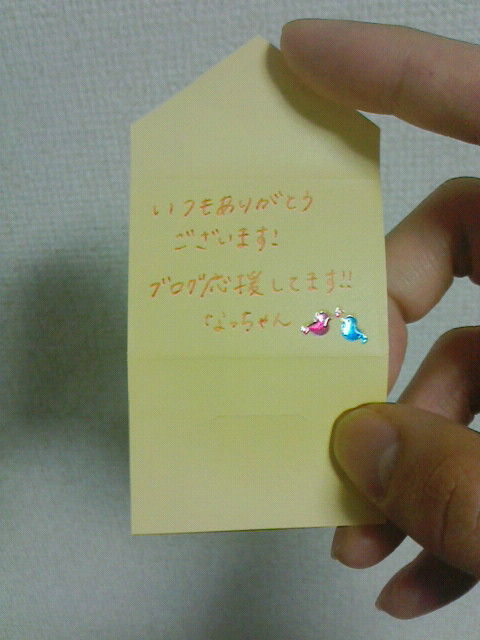 いつもありがとう
ございます!
ブログ応援してます!!
なっちゃん